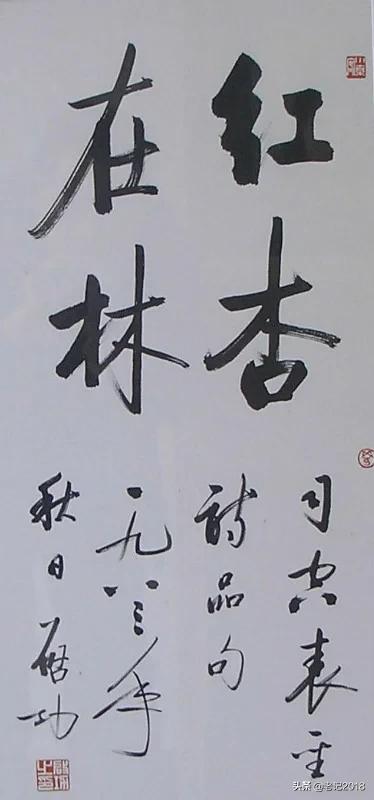 红杏
在林
司空表圣
诗品句
一九八三年
秋日 启功
头条 @老记2018